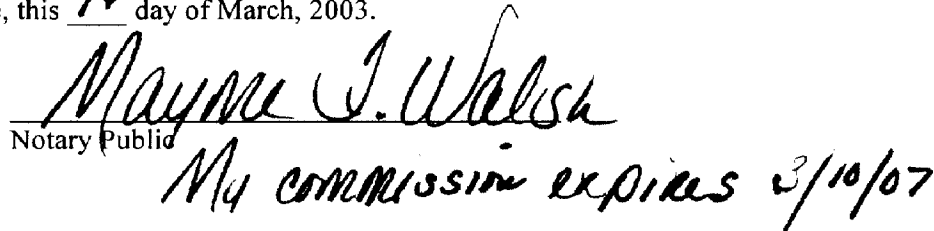 , this day of March, 2003.
Mayme J. Walsh
Notary Public
My commission expires 3/10/07